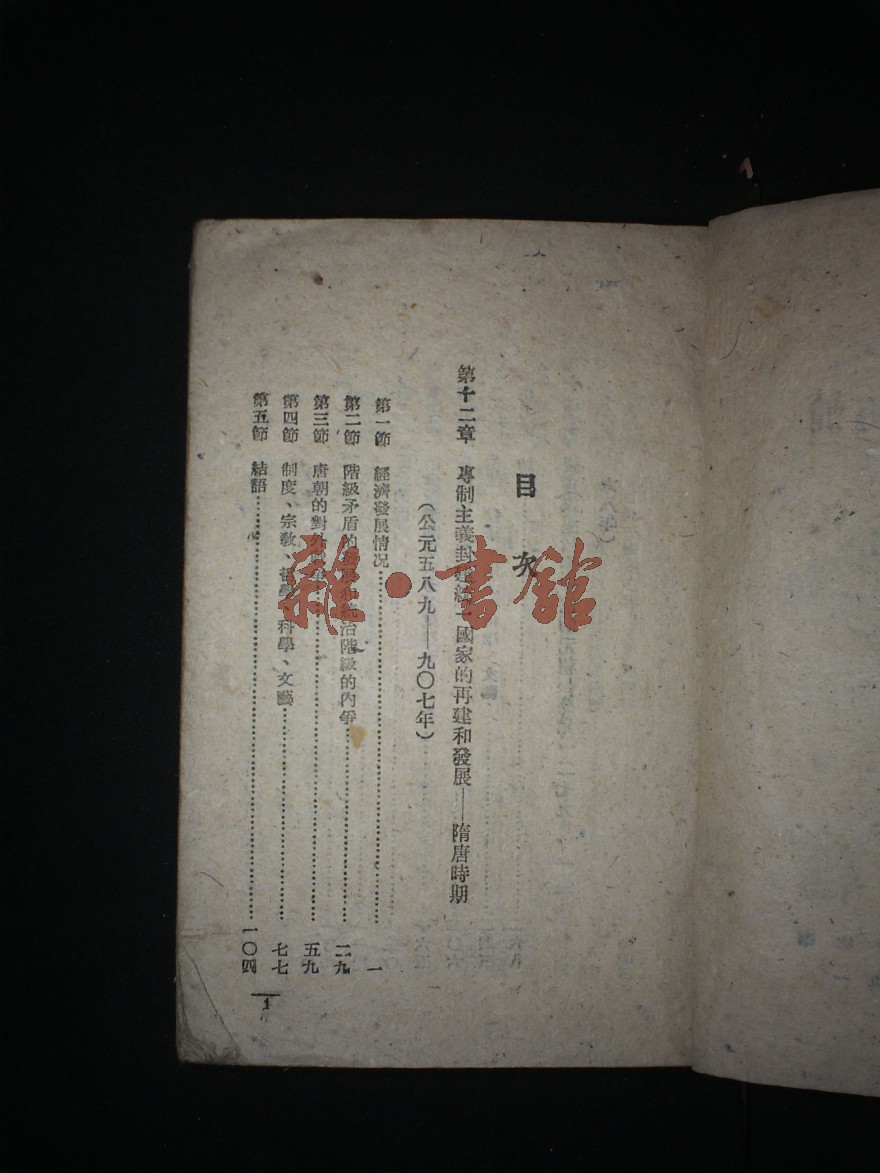 目次
第十二章 專制主義封建統一國家的再建和發展——隋唐時期
(公元五八九——九〇七年)
第一節 經濟發展情况 一
第二節 階級矛盾的和統治階級的內爭 二九
第三節 唐朝的對外 五九
第四節 制度、宗教、哲學、科學、文藝 七七
第五節 結語 一〇四
1
雜·書舘